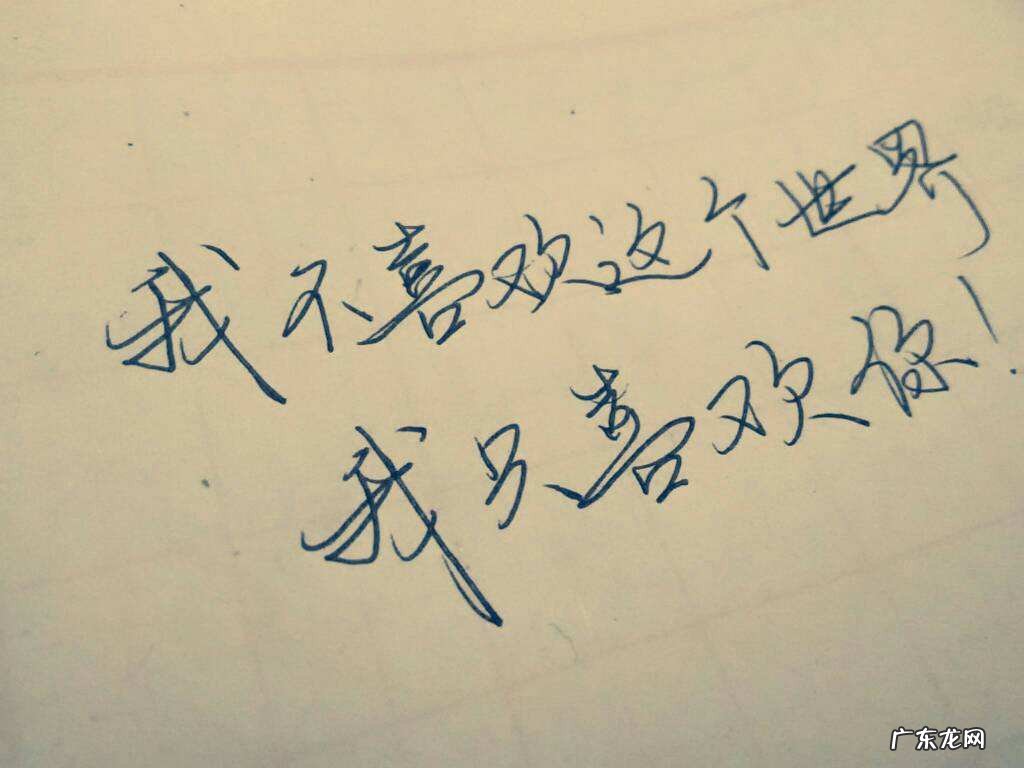 我不喜欢这个世界
我只喜欢你!
广东龙网